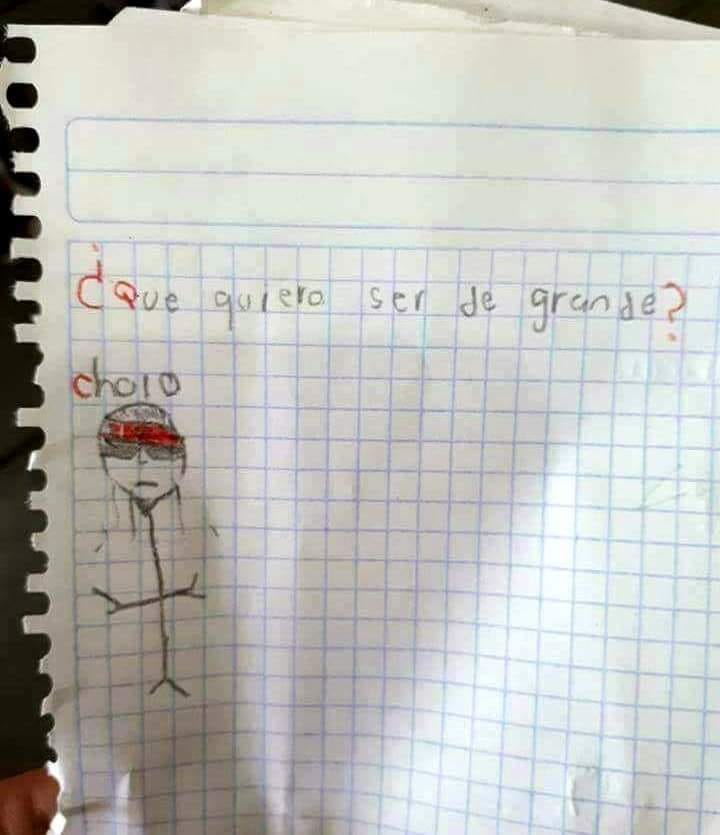 ¿Que quiero ser de grande?
cholo